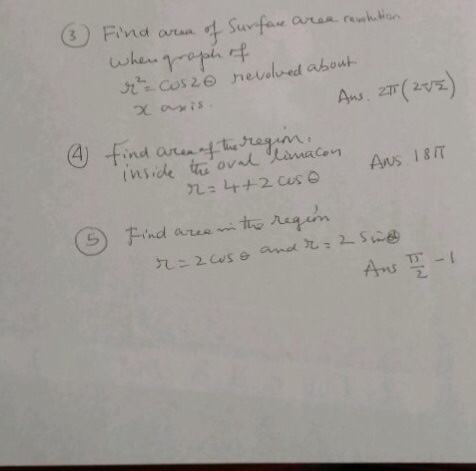 ③ Find area of Surface area revolution
when graph of
r² = cos2θ revolved about
x axis.
Ans. 2π(2√2)
④ find area of the region.
inside the oval limacon
r = 4+2 cos θ
Ans 18π
⑤ Find area in the region
r = 2 cos θ and r = 2 sinθ
Ans π/2 - 1